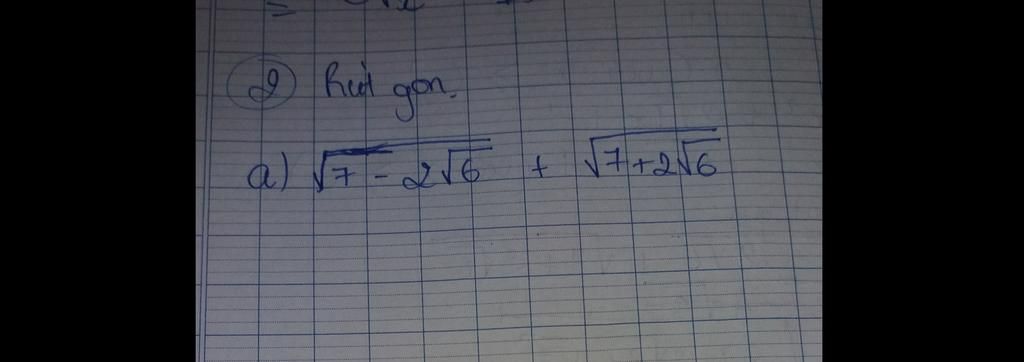 ② Rút gọn.
a) √(7 - 2√6) + √(7 + 2√6)